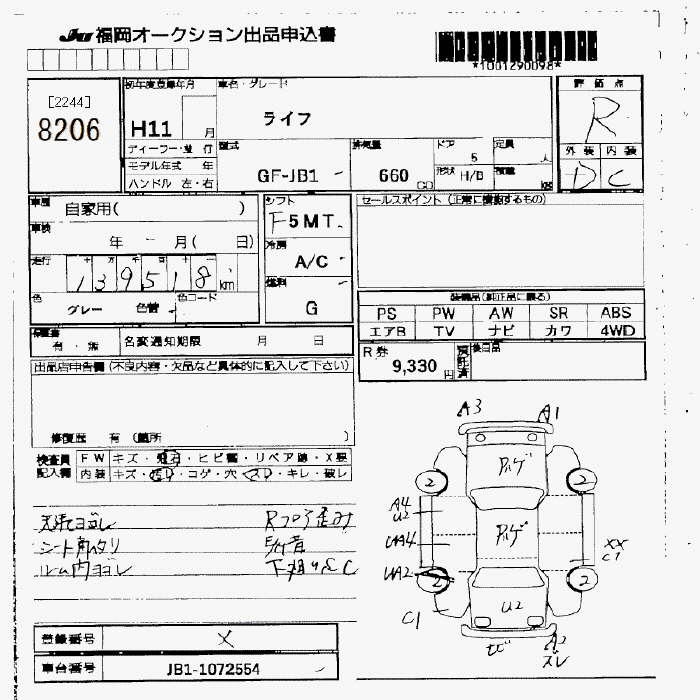 JU 福岡オークション出品申込書
*1001290098*
[2244]
8206
初年度登録年月
H11 月
車名・グレード
ライフ
評価点
R
ディーラー・並行
モデル年式 年
ハンドル 左・右
型式
GF-JB1
排気量
660 CC
ドア
5
形状 H/B
定員
人
積載
KG
外装 内装
D C
車歴
自家用( )
車検
年 - 月( 日)
走行
139518 km
色
グレー 色替
色コード
シフト
F5MT
冷房
A/C
燃料
G
セールスポイント (正常に機能するもの)
装備品(純正品に限る)
PS PW AW SR ABS
エアB TV ナビ カワ 4WD
保証書
有・無
名変通知期限 月 日
R券
9,330円
預託済
後日品
出品店申告欄 (不良内容・欠品など具体的に記入して下さい)
修復歴 有 (箇所 )
検査員記入欄
FW キズ・飛石・ヒビ・リペア跡・X要
内装 キズ・汚れ・コゲ・穴・スレ・キレ・破レ
天張ヨゴレ
シート ヘタリ
ルーム内ヨゴレ
Rフロア歪み
下廻りサビC
A3 A1
2 2
A4
U2
UA4
UA2
C1
アルゲ
アルゲ
U2
XX
C1
2 2
サビ
A2
ズレ
登録番号 X
車台番号 JB1-1072554